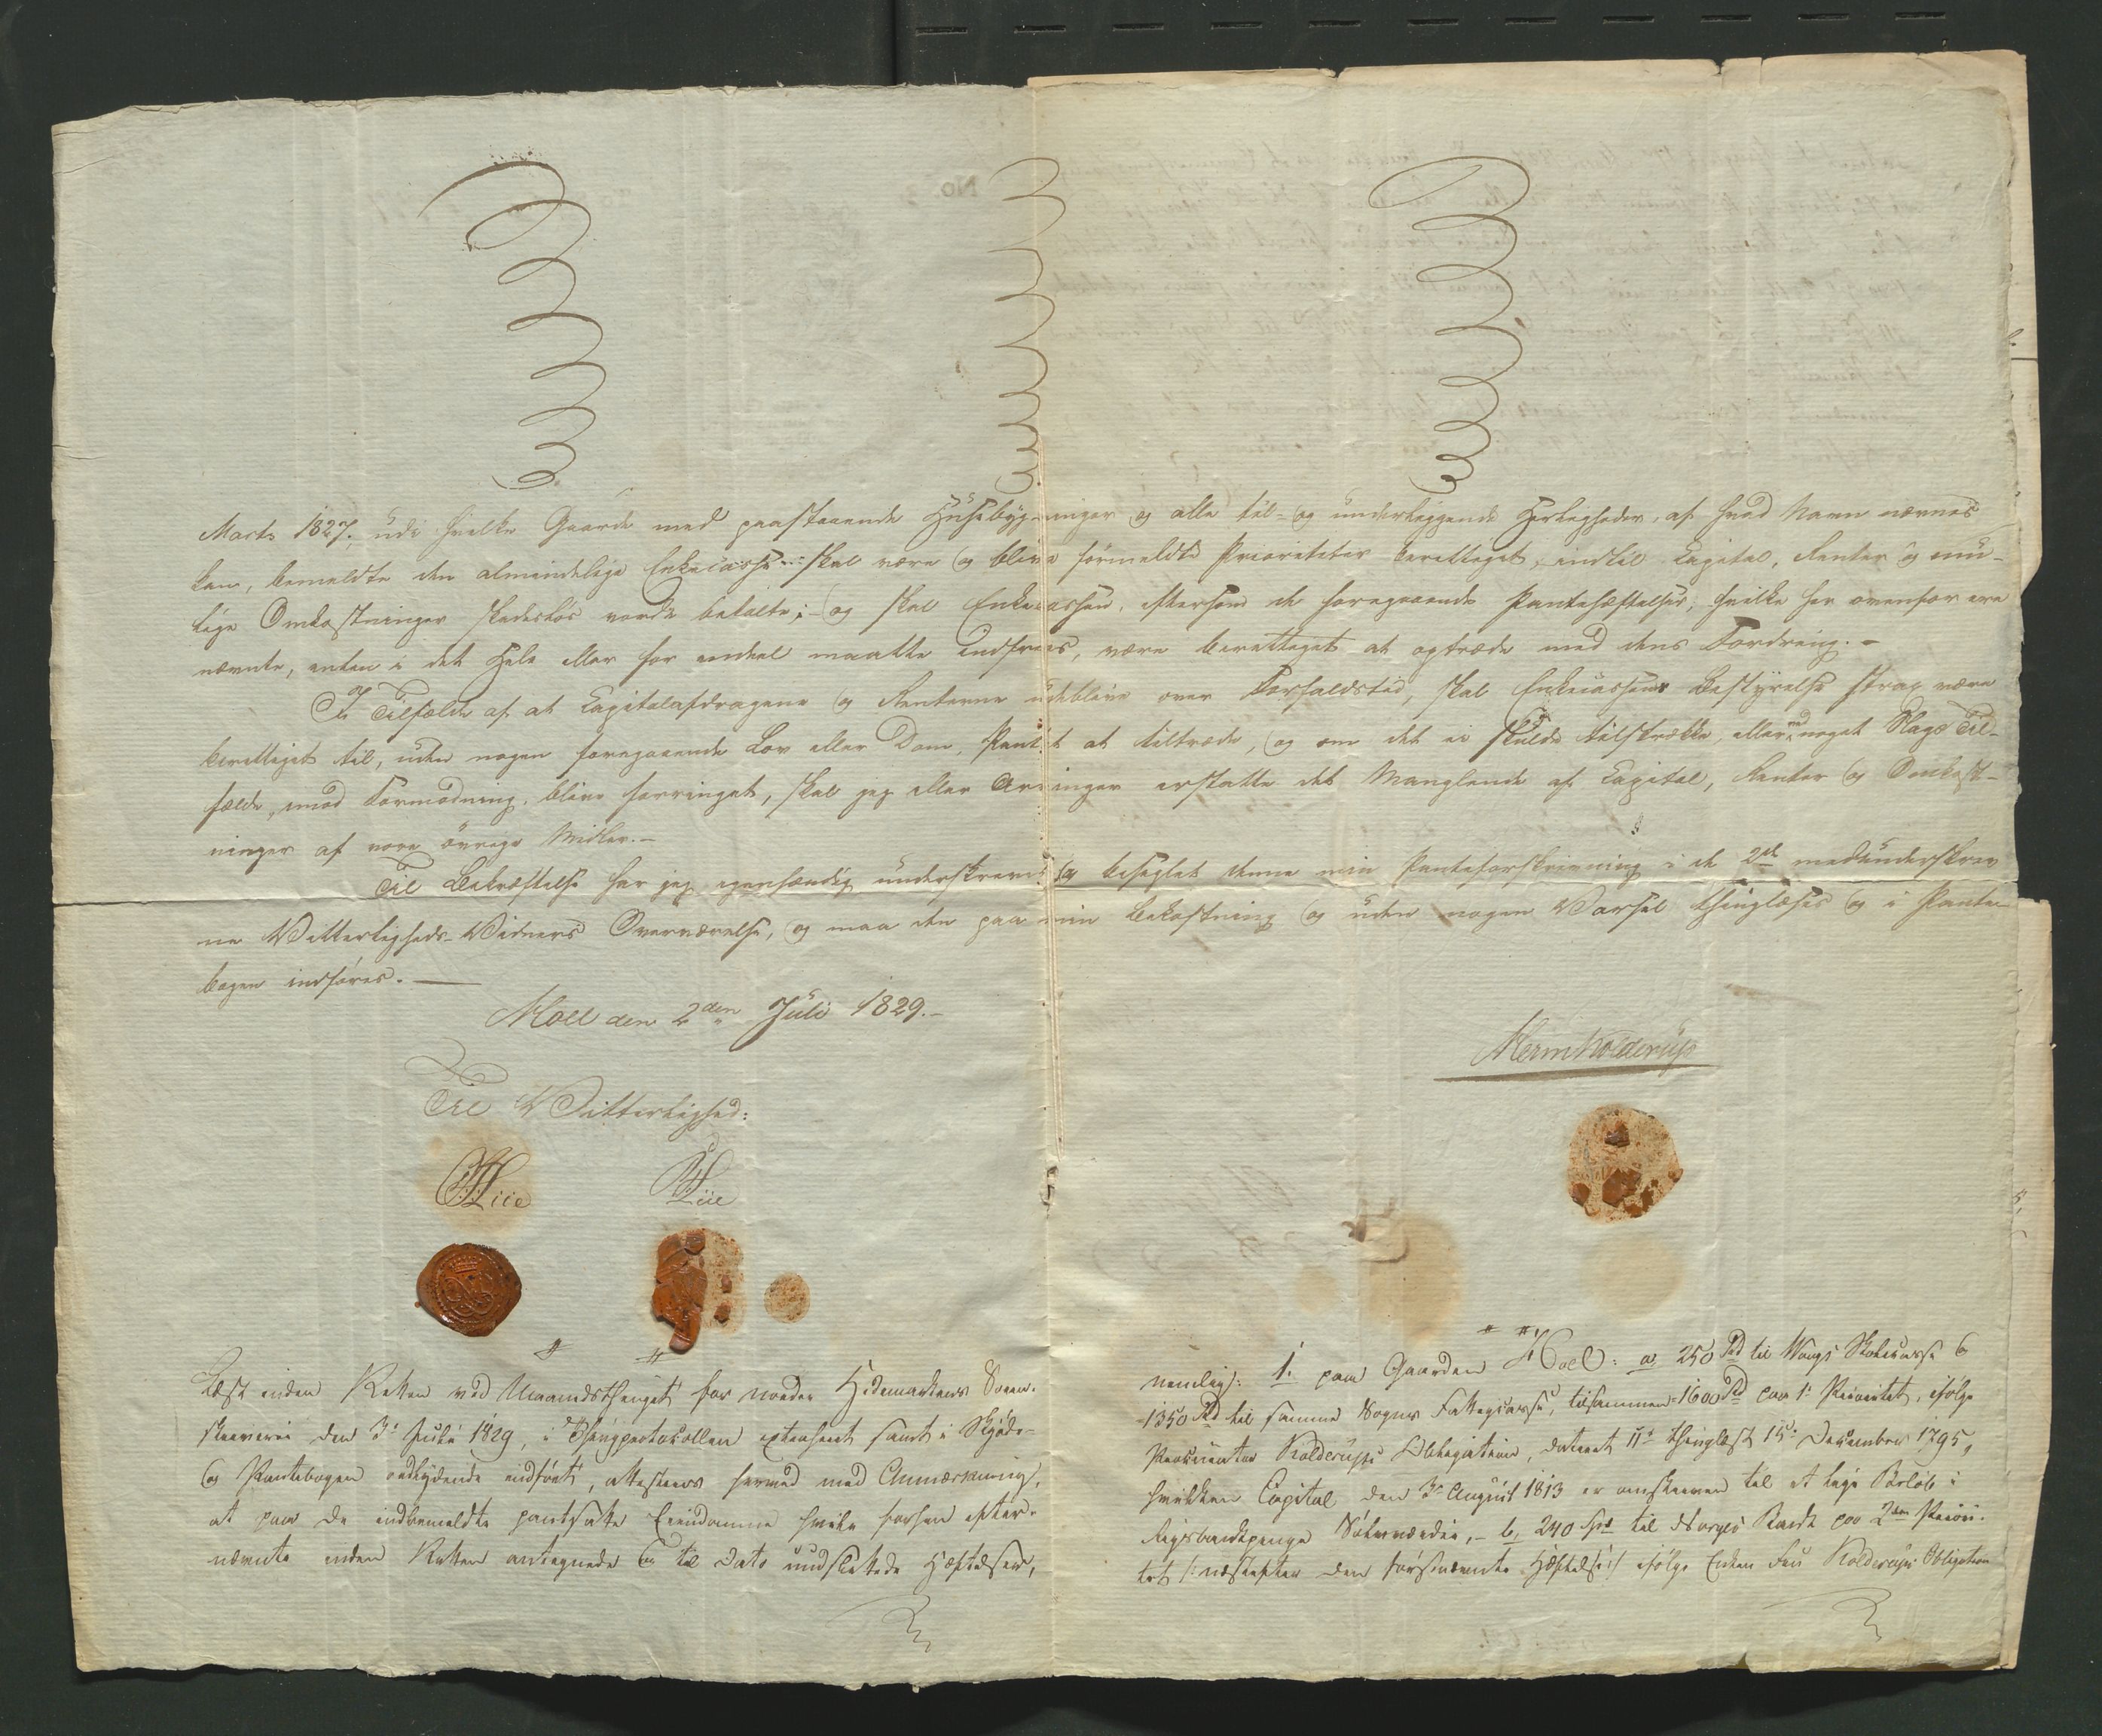 Marts 1827., udi hvilke Gaarde med paastaaende Huusebygninger og alle til- og underliggende Herligheder, af hvad Navn nævnes
kan, bemeldte den almindelige Enkecasse skal være og blive formeldte Prioriteter berettiget, indtil Capital, Renter og mu-
lige Omkostninger skadesløs vorde betalte; og skal Enkecassen, eftersom de foregaaende Pantehæftelser, hvilke her ovenfor ere
nævnte, enten i det Hele eller for endeel maatte indfries, være berettiget at optræde med dens Fordring.-
I Tilfælde af at Capitalafdragene og Renterne udeblive over Forfaldstid, skal Enkecassens Bestyrelse strax være
berettiget til, uden nogen foregaaende Lov eller Dom, Pantet at tiltræde, og om det ei skulde tilstrække, eller ved noget Slags Til-
fælde, imod Formodning, blive forringet, skal jeg eller Arvinger erstatte det Manglende af Capital, Renter og Omkost-
ninger af vore övrige Midler.-
Til Bekræftelse har jeg egenhændig underskrevet og beseglet denne min Panteforskrivning i de 2de medunderskrev
ne Vitterligheds-Vidners Overværelse, og maa den paa min Bekostning og uden nogen Varsel thinglæses og i Pante-
bogen indføres.-
Hoel den 2den Juli 1829.-
Herm Kolderup
Til Vitterlighed:
Lie Lie
Læst inden Retten ved Maanedsthinget for nordre Hedemarkens Soren-
skriverie den 3d Juli 1829, i Thingprotocollen extraheret samt i Skjöde-
og Pantebogen ordlydende indført, attesteres herved med Anmærkning,
at paa de indbemeldte pantsatte Eiendomme hvile forhen efter-
nævnte inden Retten antegnede og til Dato uudslettede Hæftelser,
nemlig: 1. paa Gaarden Hoel: a, 250 Rd til Vangs Skolecasse og
1350 Rd til samme Sogns Fattigcasse, tilsammen 1600 Rd paa 1ste Prioritet, ifølge
Procurator Kolderups Obligation, dateret 11te thinglæst 15de December 1795,
hvilken Capital den 3die August 1813 er omskreven til et lige Beløb i
Rigsbankpenge Sølvværdie,- b, 240 Spd til Norges Bank paa 2den Priori-
tet /: næstefter den førstnævnte Hæftelse :/ ifølge Enken Fru Kolderups Obligation